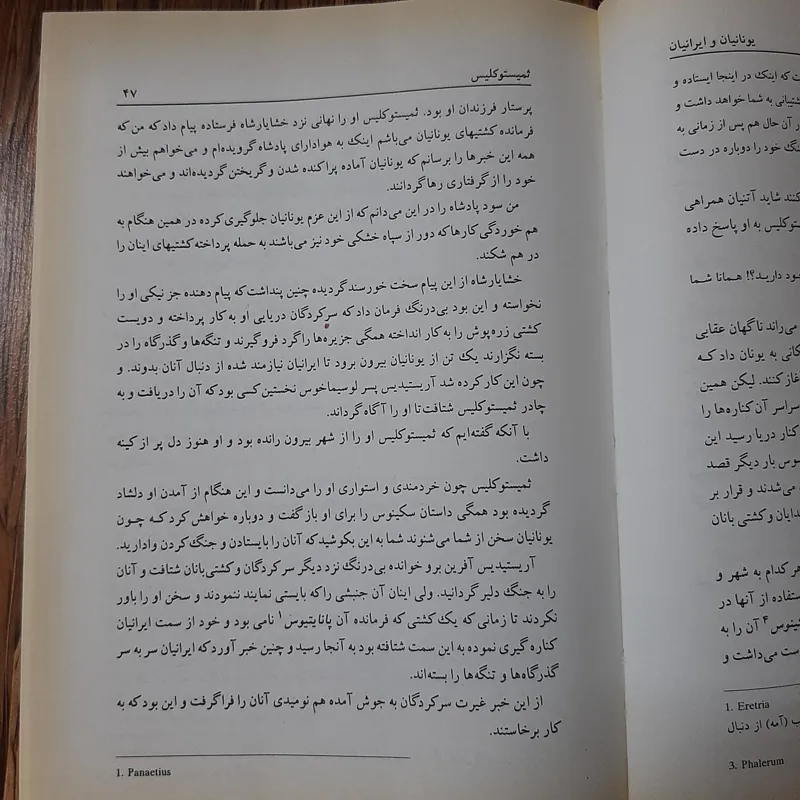 ثمیستوکلیس
۴۷
پرستار فرزندان او بود. ثمیستوکلیس او را نهانی نزد خشایارشاه فرستاده پیام داد که من که
فرمانده کشتیهای یونانیان می‌باشم اینک به هوادارای پادشاه گرویده‌ام و می‌خواهم بیش از
همه این خبرها را برسانم که یونانیان آماده پراکنده شدن و گریختن گردیده‌اند و می‌خواهند
خود را از گرفتاری رها گردانند.
من سود پادشاه را در این می‌دانم که از این عزم یونانیان جلوگیری کرده در همین هنگام به
هم خوردگی کارها که دور از سپاه خشکی خود نیز می‌باشند به حمله پرداخته کشتیهای اینان را
در هم شکند.
خشایارشاه از این پیام سخت خورسند گردیده چنین پنداشت که پیام دهنده جز نیکی او را
نخواسته و این بود بی‌درنگ فرمان داد که سرکردگان دریایی او به کار پرداخته و دویست
کشتی زره‌پوش را به کار انداخته همگی جزیره‌ها را گرد فروگیرند و تنگه‌ها و گذرگاه را در
بسته نگزارند یک تن از یونانیان بیرون برود تا ایرانیان نیازمند شده از دنبال آنان بدوند. و
چون این کار کرده شد آریستیدیس پسر لوسیماخوس نخستین کسی بود که آن را دریافت و به
چادر ثمیستوکلیس شتافت تا او را آگاه گرداند.
با آنکه گفته‌ایم که ثمیستوکلیس او را از شهر بیرون رانده بود و او هنوز دل پر از کینه
داشت.
ثمیستوکلیس چون خردمندی و استواری او را می‌دانست و این هنگام از آمدن او دلشاد
گردیده بود همگی داستان سکینوس را برای او باز گفت و دوباره خواهش کرد که چون
یونانیان سخن از شما می‌شنوند شما به این بکوشید که آنان را بایستادن و جنگ کردن وادارید.
آریستیدیس آفرین برو خوانده بی‌درنگ نزد دیگر سرکردگان و کشتی‌بانان شتافت و آنان
را به جنگ دلیر گردانید. ولی اینان آن جنبشی را که بایستی نمایند ننمودند و سخن او را باور
نکردند تا زمانی که یک کشتی که فرمانده آن پانایتیوس۱ نامی بود و خود از سمت ایرانیان
کناره گیری نموده به این سمت شتافته بود به آنجا رسید و چنین خبر آورد که ایرانیان سر به سر
گذرگاه‌ها و تنگه‌ها را بسته‌اند.
از این خبر غیرت سرکردگان به جوش آمده هم نومیدی آنان را فرا گرفت و این بود که به
کار برخاستند.
1. Panaetius
یونانیان و ایرانیان
ت که اینک در اینجا ایستاده و
شتیبانی به شما خواهد داشت و
ر آن حال هم پس از زمانی به
نگ خود را دوباره در دست
کنند شاید آتنیان همراهی
ستوکلیس به او پاسخ داده
خود دارید؟! همانا شما
می‌راند ناگهان عقابی
کانی به یونان داد که
غاز کنند. لیکن همین
سراسر آن کناره‌ها را
کنار دریا رسید این
سوس بار دیگر قصد
می‌شدند و قرار بر
دایان و کشتی بانان
هر کدام به شهر و
ستفاده از آنها در
کینوس۴ آن را به
ست می‌داشت و
1. Eretria
ب (آمه) از دنبال
3. Phalerum